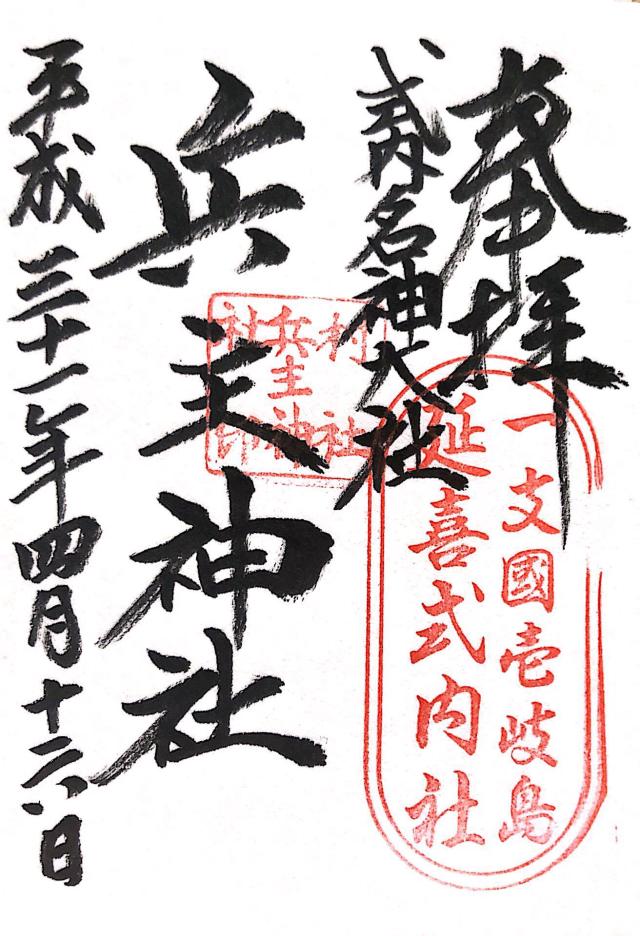 奉拝
式内名神大社
一支國壱岐島
延喜式内社
兵主神社
村社
兵主神
社印
平成三十一年四月十六日